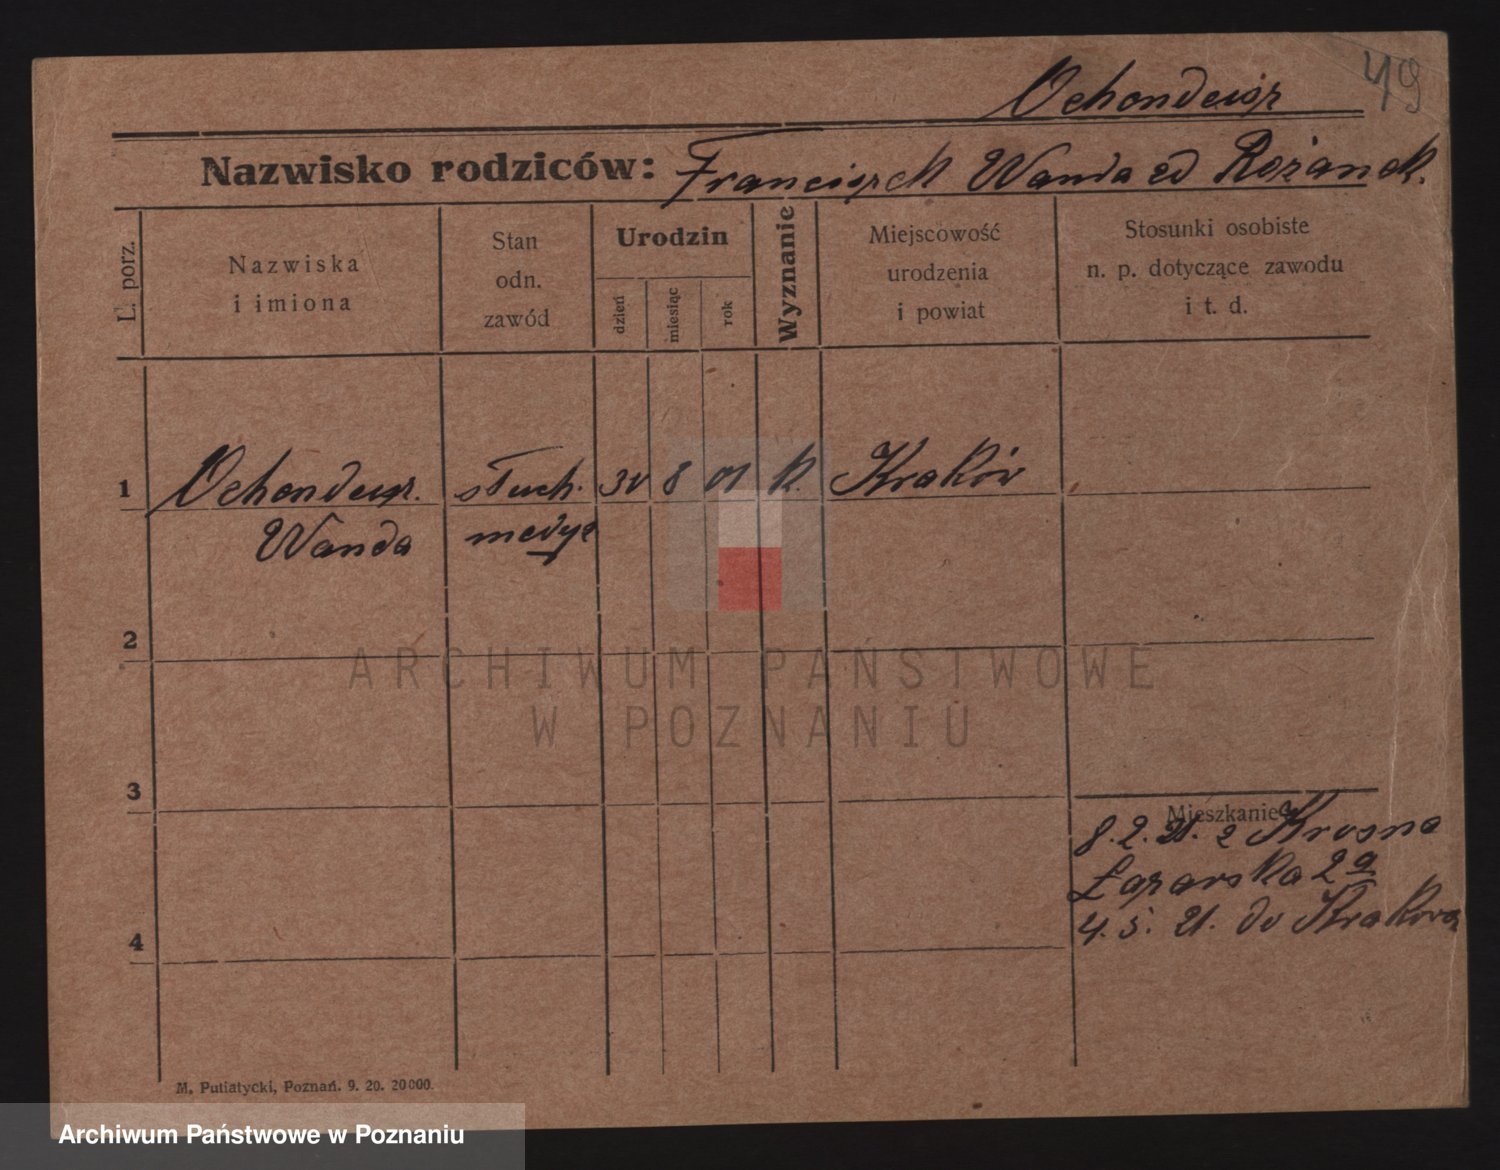 49
Nazwisko rodziców: Franciszek Wanda
L. porz.
Nazwiska
i imiona
Stan
odn.
zawód
Urodzin
dzień
miesiąc
rok
Wyznanie
Miejscowość
urodzenia
i powiat
Stosunki osobiste
n. p. dotyczące zawodu
i t. d.
1 słuch. 30 8 01 k. Kraków
Wanda medyc
2
3
4
Mieszkanie
8. 2. 21. z Krosna
Łazarska 2a
4. 5. 21. do Krakowa
ARCHIWUM PAŃSTWOWE
W POZNANIU
M. Putiatycki, Poznań. 9. 20. 20000.
Archiwum Państwowe w Poznaniu